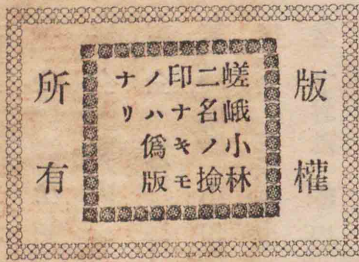 版權
嵯峨小林
二名ノ撿
印ナキモ
ノハ僞版
ナリ
所有